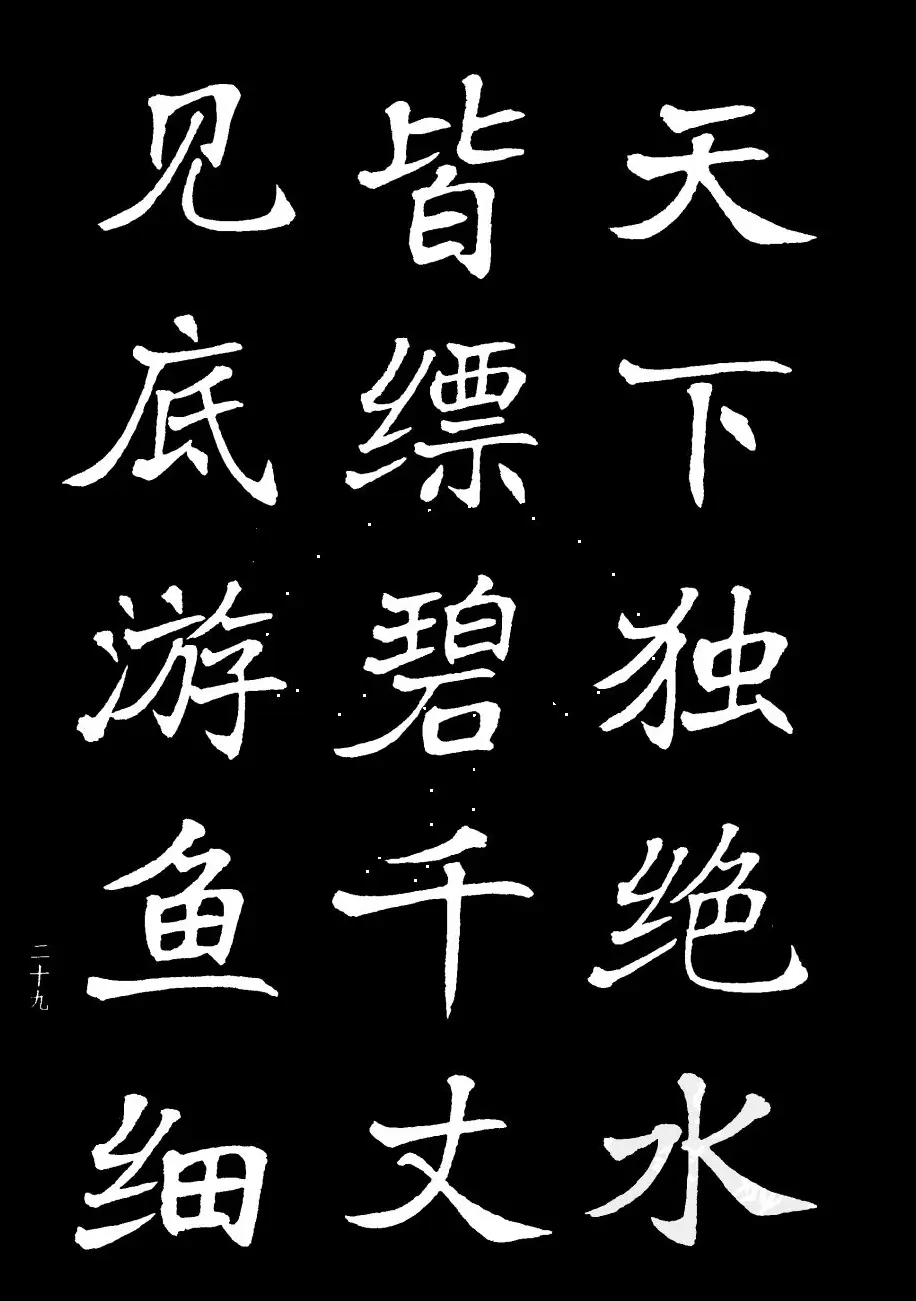 天下独绝水
皆缥碧千丈
见底游鱼细
二十九